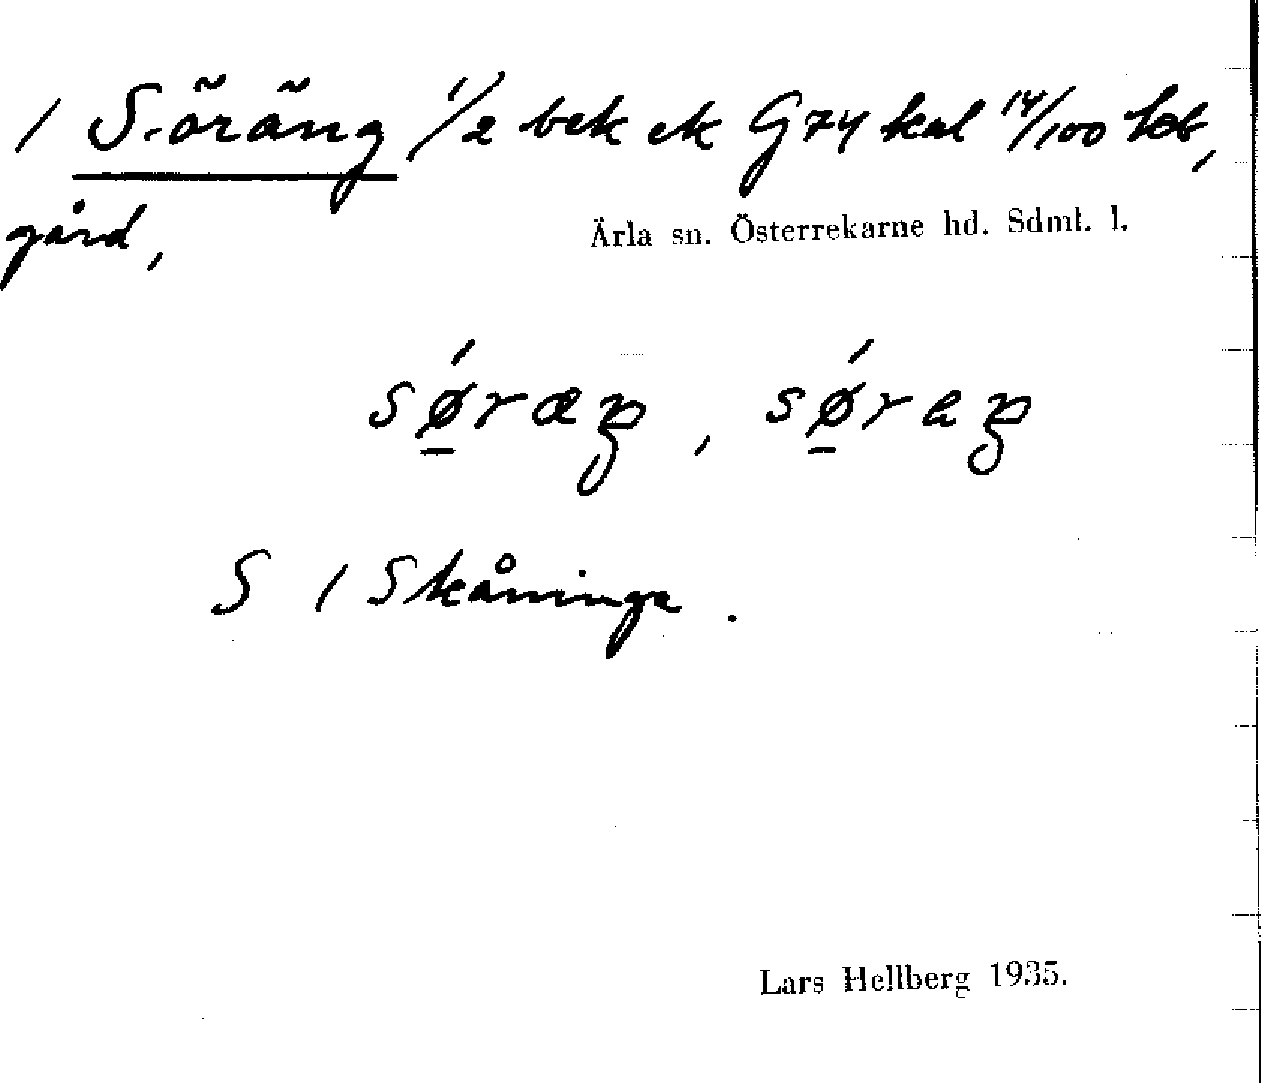 / Söräng 1/2 bek ek G 74 kat 14/100 hb,
gård,
Ärla sn. Österrekarne hd. Sdml. l.
sǿ̱ræŋ, sǿ̱reŋ
S / Skåninge.
Lars Hellberg 1935.